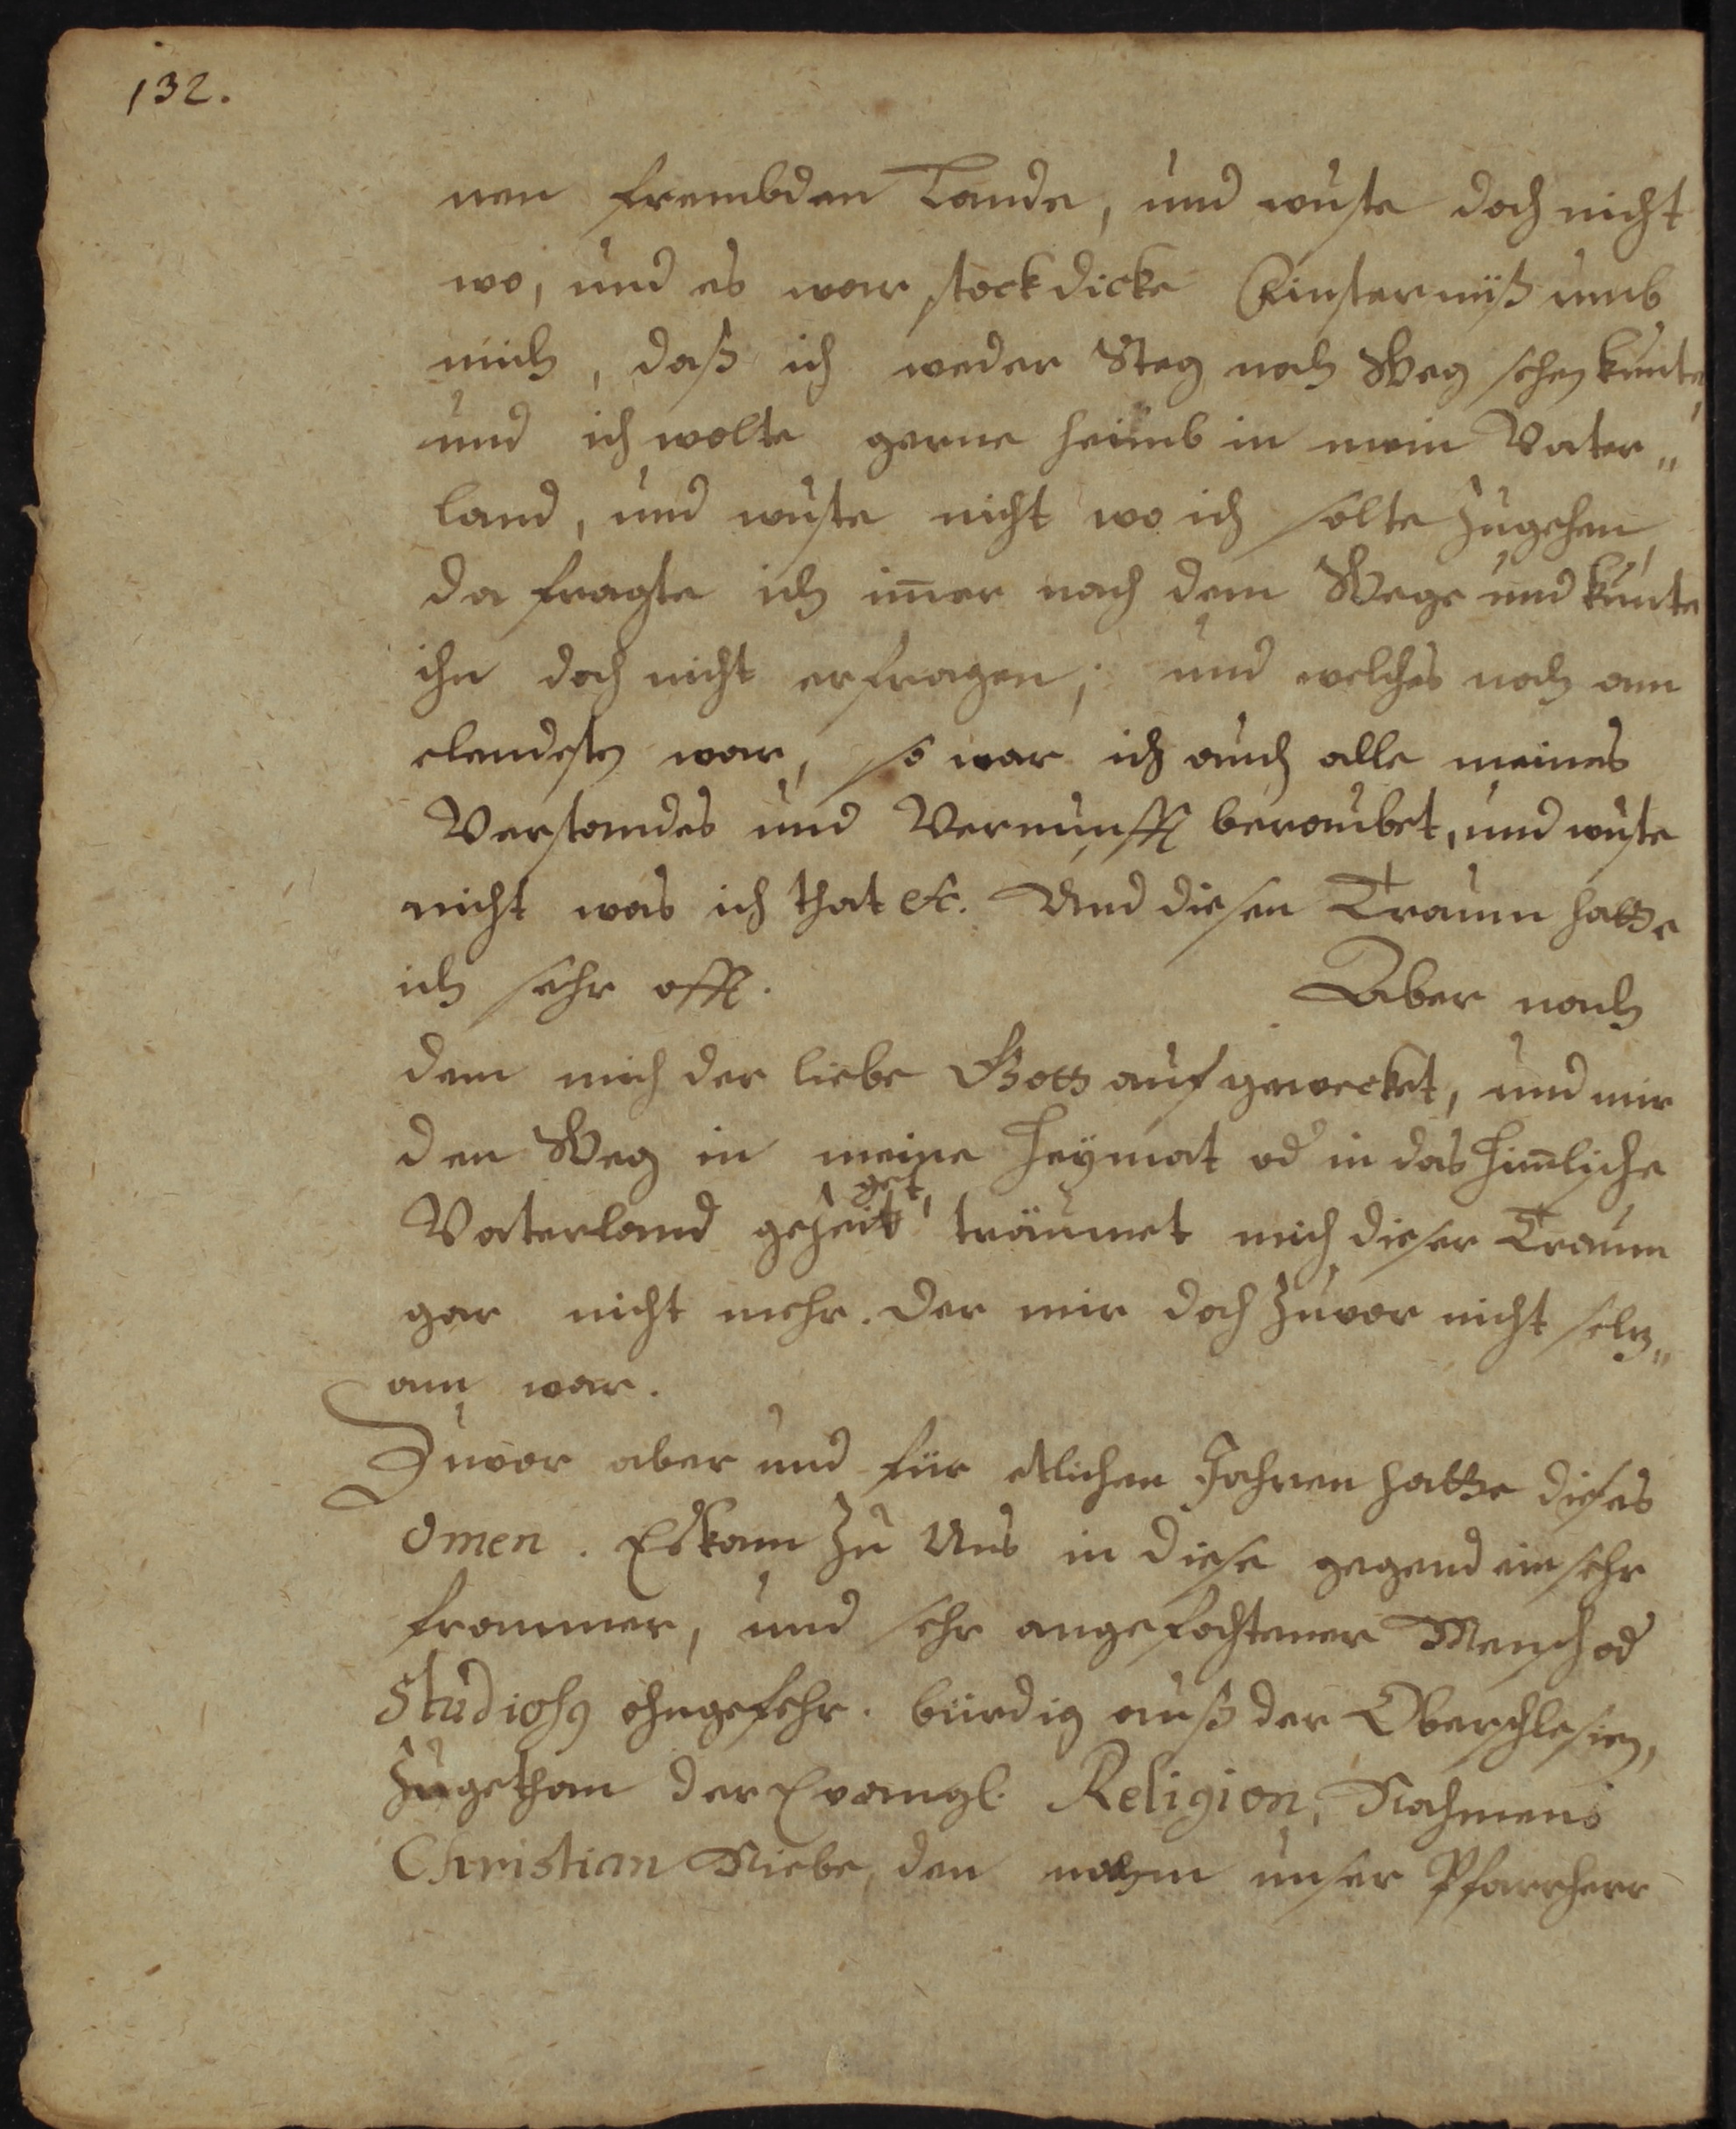 132.
nen frembden Lande, und wuste doch nicht
wo, und es war stockdicke Finsternüß umb
mich, daß ich weder Steg noch Weg sehen kunte,
und ich wolte gerne heimb in mein Vater„
land, und wuste nicht wo ich solte zugehen,
da fragte ich im̄er nach dem Wege und kunte
ihn doch nicht erfragen; und welches noch am
elendesten war, so war ich auch alle meines
Verstandes und Vernunfft beraubet, und wuste
nicht was ich that etc. Und diesen Traum hatte
ich sehr offt. Aber nach
dem mich der liebe Gott aufgewecket, und mir
den Weg in meine Heymat od in das him̄lische
Vaterland gezeiget, träumet mich dieser Traum
gar nicht mehr. der mir doch zuvor nicht seltz„
am war.
Zuvor aber und für etlichen Jahren hatte dieses
Omen. Es kam zu Uns in diese gegend ein sehr
frommer, und sehr angefochtener Mensch od
Studiosq ohngefehr. bürdig auß der Oberschlesien,
zugethan der Evangl. Religion, Nahmens
Christian Niebe, den nahm unser Pfarrherr